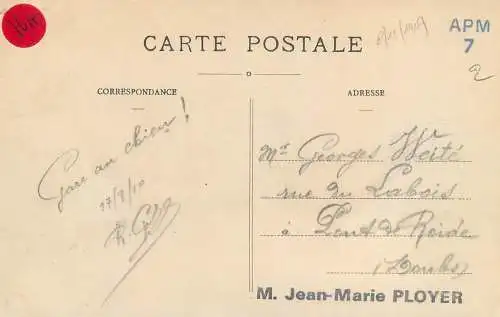 CARTE POSTALE
APM
7
2
CORRESPONDANCE
ADRESSE
Gare au chien !
17/8/10
Mr Georges
rue du Labois
à Pont de Roide
(Doubs)
M. Jean-Marie PLOYER